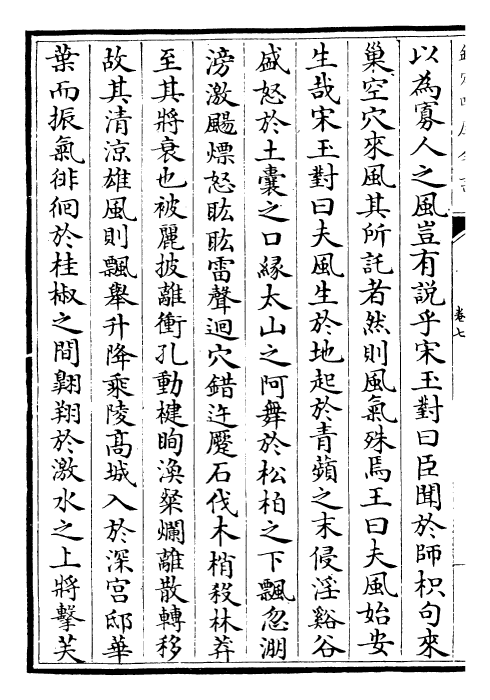 以為寡人之風豈有說乎宋玉對曰臣聞於師枳句來
巢空穴來風其所託者然則風氣殊焉王曰夫風始安
生哉宋玉對曰夫風生於地起於青蘋之末侵淫谿谷
盛怒於土囊之口緣太山之阿舞於松柏之下飄忽淜
滂激颺熛怒耾耾雷聲迴穴錯迕蹷石伐木梢殺林莽
至其將衰也被麗披離衝孔動楗眴渙粲爛離散轉移
故其清涼雄風則飄舉升降乘陵髙城入於深宮邸華
葉而振氣徘徊於桂椒之間翺翔於激水之上將擊芙
卷七